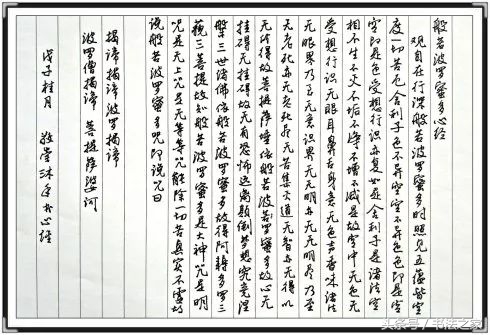 般若波罗蜜多心经
观自在行深般若波罗蜜多时照见五蕴皆空
度一切苦厄舍利子色不异空空不异色色即是空
空即是色受想行识亦复如是舍利子是诸法空
相不生不灭不垢不净不增不减是故空中无色无
受想行识无眼耳鼻舌身意无色声香味触法
无眼界乃至无意识界无无明亦无无明尽乃至
无老死亦无老死尽无苦集灭道无智亦无得以
无所得故菩提萨埵依般若波罗蜜多故心无
挂碍无挂碍故无有恐怖远离颠倒梦想究竟涅
槃三世诸佛依般若波罗蜜多故得阿耨多罗三
藐三菩提故知般若波罗蜜多是大神咒是明
咒是无上咒是无等等咒能除一切苦真实不虚故
说般若波罗蜜多咒即说咒曰
揭谛揭谛波罗揭谛
波罗僧揭谛 菩提萨婆诃
戊子桂月 敬堂沐手书心经
头条号 / 书法之家